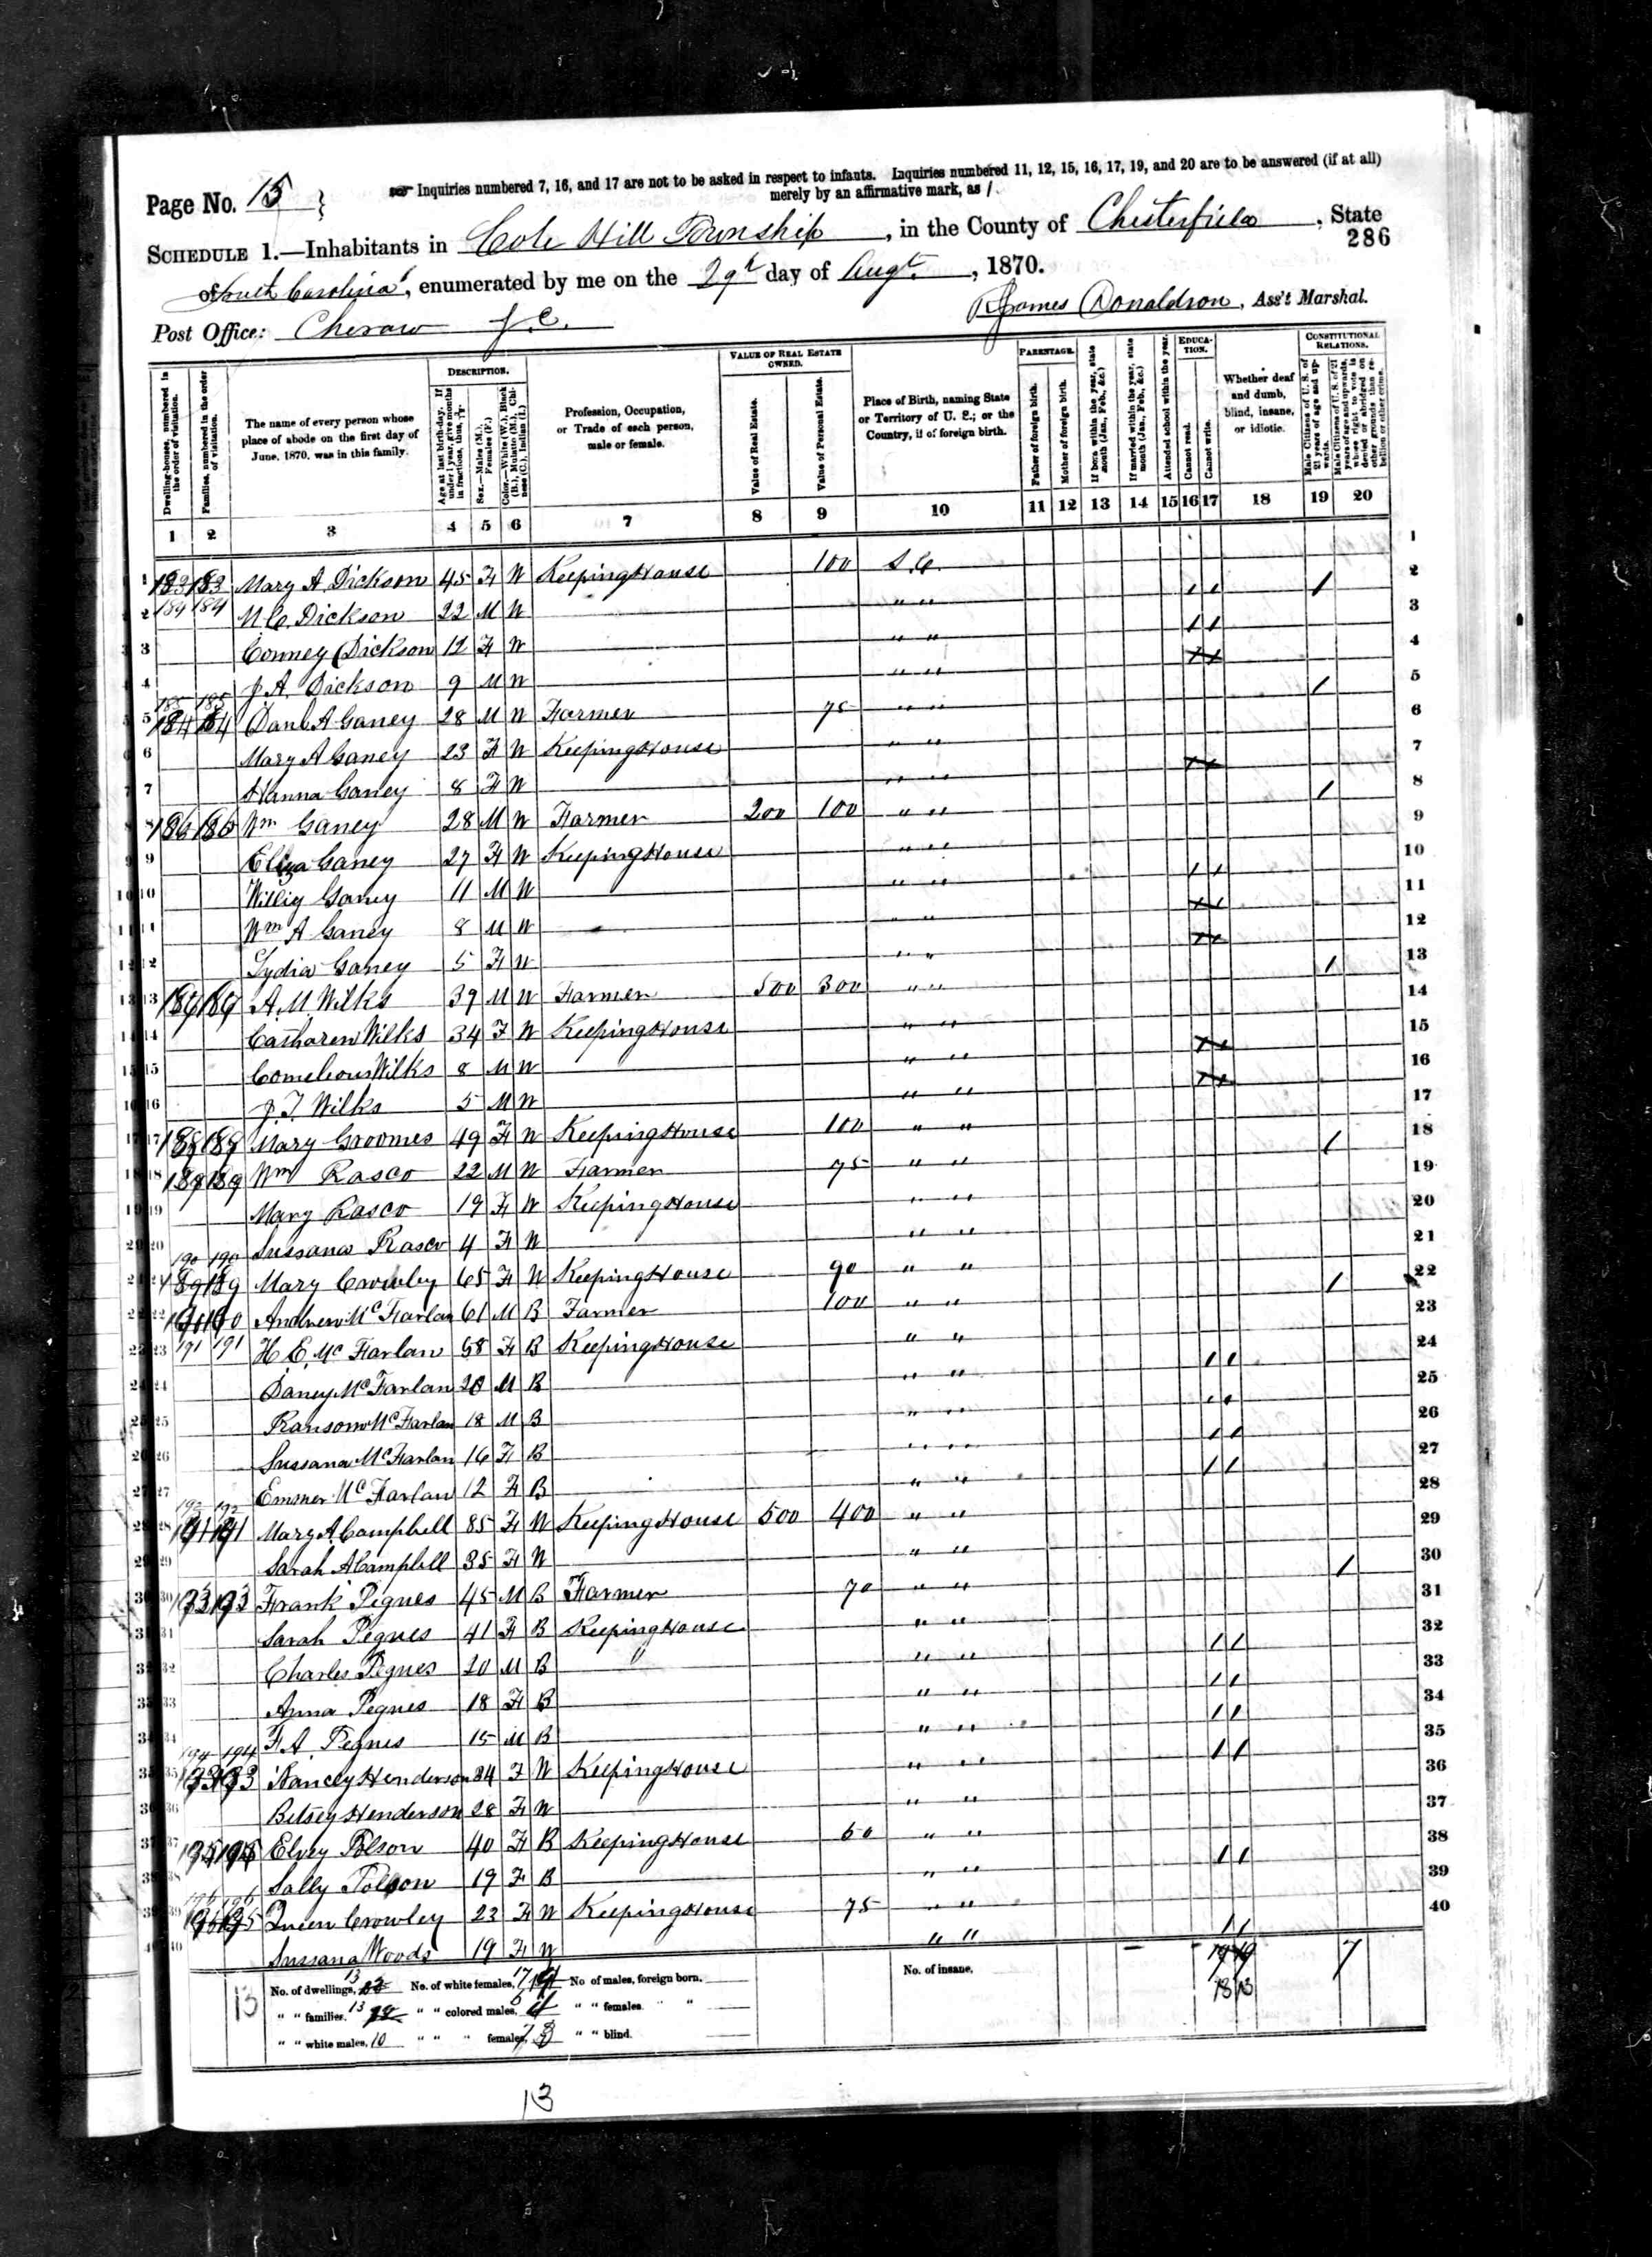 Page No. 15
Inquiries numbered 7, 16, and 17 are not to be asked in respect to infants. Inquiries numbered 11, 12, 15, 16, 17, 19, and 20 are to be answered (if at all)
merely by an affirmative mark, as /.
SCHEDULE 1.—Inhabitants in Cole Hill Township, in the County of Chesterfield, State
286
of South Carolina, enumerated by me on the 29th day of Augt., 1870.
Post Office: Cheraw S.C.
James Donaldson, Ass't Marshal.
Dwelling-houses, numbered in the order of visitation.
Families, numbered in the order of visitation.
The name of every person whose place of abode on the first day of June, 1870, was in this family.
DESCRIPTION.
Age at last birth-day. If under 1 year, give months in fractions, thus, 3/12.
Sex.—Males (M.), Females (F.)
Color.—White (W.), Black (B.), Mulatto (M.), Chinese (C.), Indian (I.)
Profession, Occupation, or Trade of each person, male or female.
VALUE OF REAL ESTATE OWNED.
Value of Real Estate.
Value of Personal Estate.
Place of Birth, naming State or Territory of U. S.; or the Country, if of foreign birth.
PARENTAGE.
Father of foreign birth.
Mother of foreign birth.
If born within the year, state month (Jan., Feb., &c.)
If married within the year, state month (Jan., Feb., &c.)
Attended school within the year.
EDUCATION.
Cannot read.
Cannot write.
Whether deaf and dumb, blind, insane, or idiotic.
CONSTITUTIONAL RELATIONS.
Male Citizens of U. S. of 21 years of age and upwards.
Male Citizens of U. S. of 21 years of age and upwards, whose right to vote is denied or abridged on other grounds than rebellion or other crime.
1 2 3 4 5 6 7 8 9 10 11 12 13 14 15 16 17 18 19 20
1 183 183 Mary A. Dickson 45 F W Keeping House 100 S.C.
2 184 184 M C. Dickson 22 M W " " / / /
3 Conney Dickson 12 F W " " / /
4 J A. Dickson 9 M W " "
5 185 185 Danl A Ganey 28 M W Farmer 75 " " /
6 Mary A Ganey 23 F W Keeping House " "
7 Hanna Ganey 8 F W " "
8 186 186 Wm Ganey 28 M W Farmer 200 100 " " /
9 Eliza Ganey 27 F W Keeping House " "
10 Willey Ganey 11 M W " " / /
11 Wm A Ganey 8 M W " "
12 Lydia Ganey 5 F W " "
13 A. M. Wilks 39 M W Farmer 500 300 " " /
14 Catharen Wilks 34 F W Keeping House " "
15 Cornelious Wilks 8 M W " "
16 J. T. Wilks 5 M W " "
17 Mary Groomes 49 F W Keeping House 100 " "
18 189 189 Wm Rasco 22 M W Farmer 75 " " /
19 Mary Rasco 19 F W Keeping House " "
20 Sussana Rasco 4 F W " "
21 190 190 Mary Crowley 65 F W Keeping House 90 " "
22 Andrew McFarlan 61 M B Farmer 100 " " /
23 191 191 H. E. McFarlan 58 F B Keeping House " "
24 Daney McFarlan 20 M B " " / /
25 Ransom McFarlan 18 M B " " / /
26 Sussana McFarlan 16 F B " " / /
27 Emsner McFarlan 12 F B " " / /
28 192 192 Mary A. Campbell 85 F W Keeping House 500 400 " "
29 Sarah A Campbell 35 F W " "
30 193 193 Frank Pegues 45 M B Farmer 70 " " /
31 Sarah Pegues 41 F B Keeping House " "
32 Charles Pegues 20 M B " " / /
33 Anna Pegues 18 F B " " / /
34 F A. Pegues 15 M B " " / /
35 194 194 Nancy Henderson 84 F W Keeping House " " / /
36 Betsey Henderson 28 F W " "
37 195 195 Elvey Polson 40 F B Keeping House 60 " "
38 Sally Polson 19 F B " " / /
39 196 196 Queen Crowley 23 F W Keeping House 75 " "
40 Sussana Woods 19 F W " " / /
No. of dwellings, 13 No. of white females, 17 No of males, foreign born.
No. of insane.
" " families, 13 " " colored males, " " females. " "
" " white males, 10 " " " females, " " blind.
13 13 7
13
13